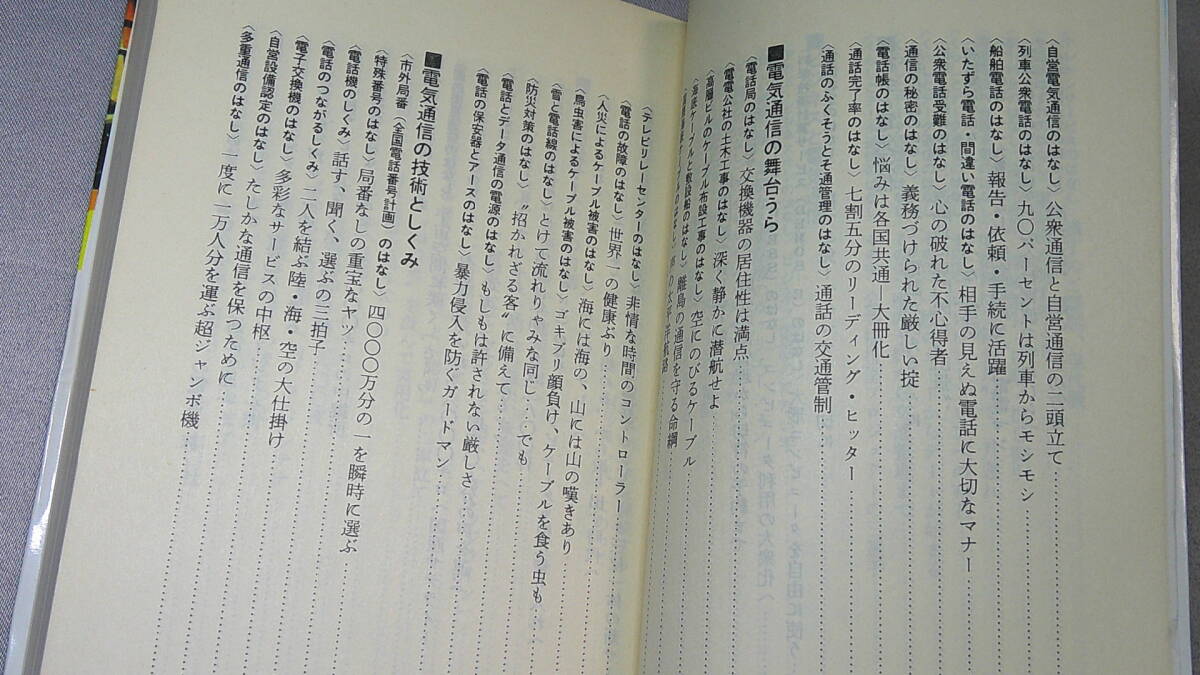 〈自営電気通信のはなし〉公衆通信と自営通信の二頭立て
〈列車公衆電話のはなし〉九〇パーセントは列車からモシモシ
〈船舶電話のはなし〉報告・依頼・手続に活躍
〈いたずら電話・間違い電話のはなし〉相手の見えぬ電話に大切なマナー
〈公衆電話受難のはなし〉心の破れた不心得者
〈通信の秘密のはなし〉義務づけられた厳しい掟
〈電話帳のはなし〉悩みは各国共通―大冊化
〈通話完了率のはなし〉七割五分のリーディング・ヒッター
〈通話のふくそうとそ通管理のはなし〉通話の交通管制
■電気通信の舞台うら
〈電話局のはなし〉交換機器の居住性は満点
〈電電公社の土木工事のはなし〉深く静かに潜航せよ
〈高層ビルのケーブル布設工事のはなし〉空にのびるケーブル
〈海底ケーブルと敷設船のはなし〉離島の通信を守る命綱
〈テレビリレーセンターのはなし〉非情な時間のコントローラー
〈電話の故障のはなし〉世界一の健康ぶり
〈人災によるケーブル被害のはなし〉海には海の、山には山の嘆きあり
〈鳥虫害によるケーブル被害のはなし〉ゴキブリ顔負け、ケーブルを食う虫も
〈雪と電話線のはなし〉とけて流れりゃみな同じ…でも
〈防災対策のはなし〉〝招かれざる客〟に備えて
〈電話とデータ通信の電源のはなし〉もしもは許されない厳しさ
〈電話の保安器とアースのはなし〉暴力侵入を防ぐガードマン
■電気通信の技術としくみ
〈市外局番（全国電話番号計画）のはなし〉四〇〇〇万分の一を瞬時に選ぶ
〈特殊番号のはなし〉局番なしの重宝なヤツ
〈電話機のしくみ〉話す、聞く、選ぶの三拍子
〈電話のつながるしくみ〉二人を結ぶ陸・海・空の大仕掛け
〈電子交換機のはなし〉多彩なサービスの中枢
〈自営設備認定のはなし〉たしかな通信を保つために
〈多重通信のはなし〉一度に一万人分を運ぶ超ジャンボ機